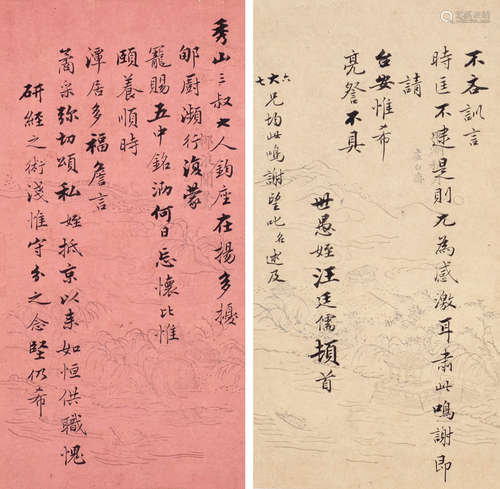 秀山三叔大人鈞座在揚多擾
郇厨瀕行復蒙
寵賜五中銘泐何日忘懷比惟
頤養順時
潭居多福詹言
喬采弥切頌私姪抵京以来如恒供職愧
研經之術淺惟守分之念堅仍希
不吝訓言
時匡不逮是則尤為感激耳肅此鳴謝即
請
台安惟希
亮詧不具
世愚姪汪廷儒頓首
六大七兄均此鳴謝望叱名述及